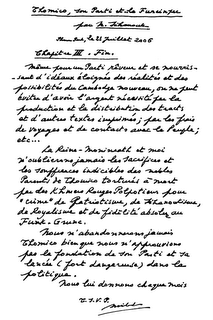 Thomico, son Parti et le Funcinpec
par N. Sihanouk
Pékin, le 28 Juillet 2006
Chapitre III - Fin.
Même pour un Parti rêveur et se nourris-
sant d'idéaux éloignés des réalités et des
possibilités du Cambodge nouveau, on ne peut
éviter d'avoir l'argent nécessité par la
production et la distribution des tracts
et d'autres textes imprimés ; par les frais
de voyages et de contacts avec le Peuple ;
etc...
La Reine-Monineath et moi
n'oublierons jamais les sacrifices et
les souffrances indicibles des nobles
Parents de Thomico torturés à mort
par les Khmers Rouges Polpotiens pour
"crime" de Patriotisme, de Sihanoukisme,
de Royalisme et de fidélité absolue au
Funk-Grunc.
Nous n'abandonnerons jamais
Thomico bien que nous n'approuvions
pas la fondation de son Parti et sa
lancée (fort dangereuse) dans la
politique.
Nous lui donnons chaque mois
T.S.V.P.